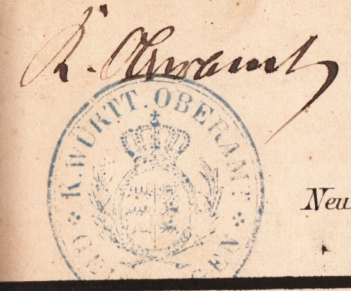 K. Oberamt
K. WÜRTT. OBERAMT
Neu